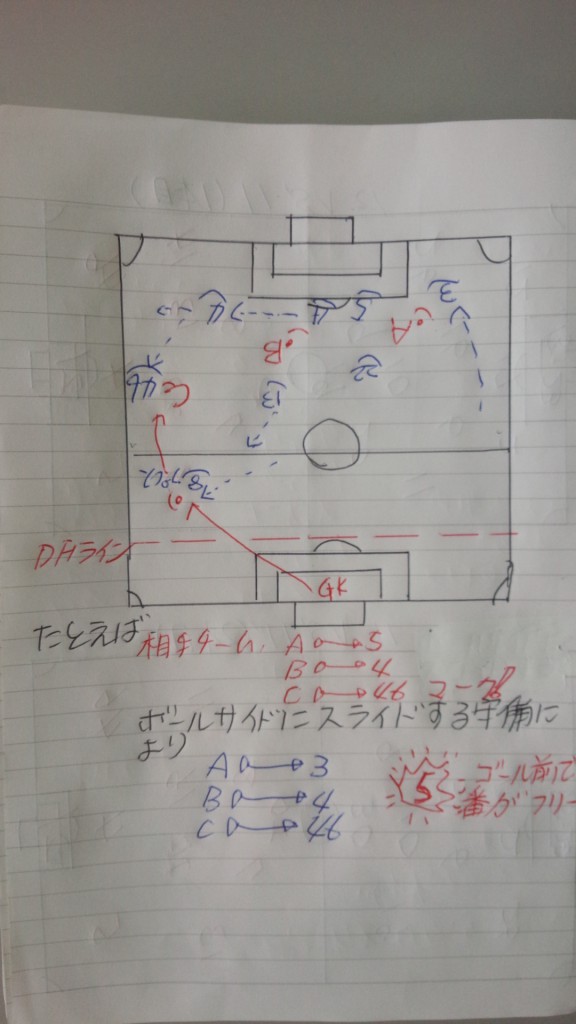 3
4
4
5
A
B
22
46
C
13
8
プレス
DHライン
GK
たとえば
相手チーム A 5
B 4
C 46
ボールサイドにスライドする守備に
より
A 3
B 4
C 46
5 ゴール前で
番がフリー